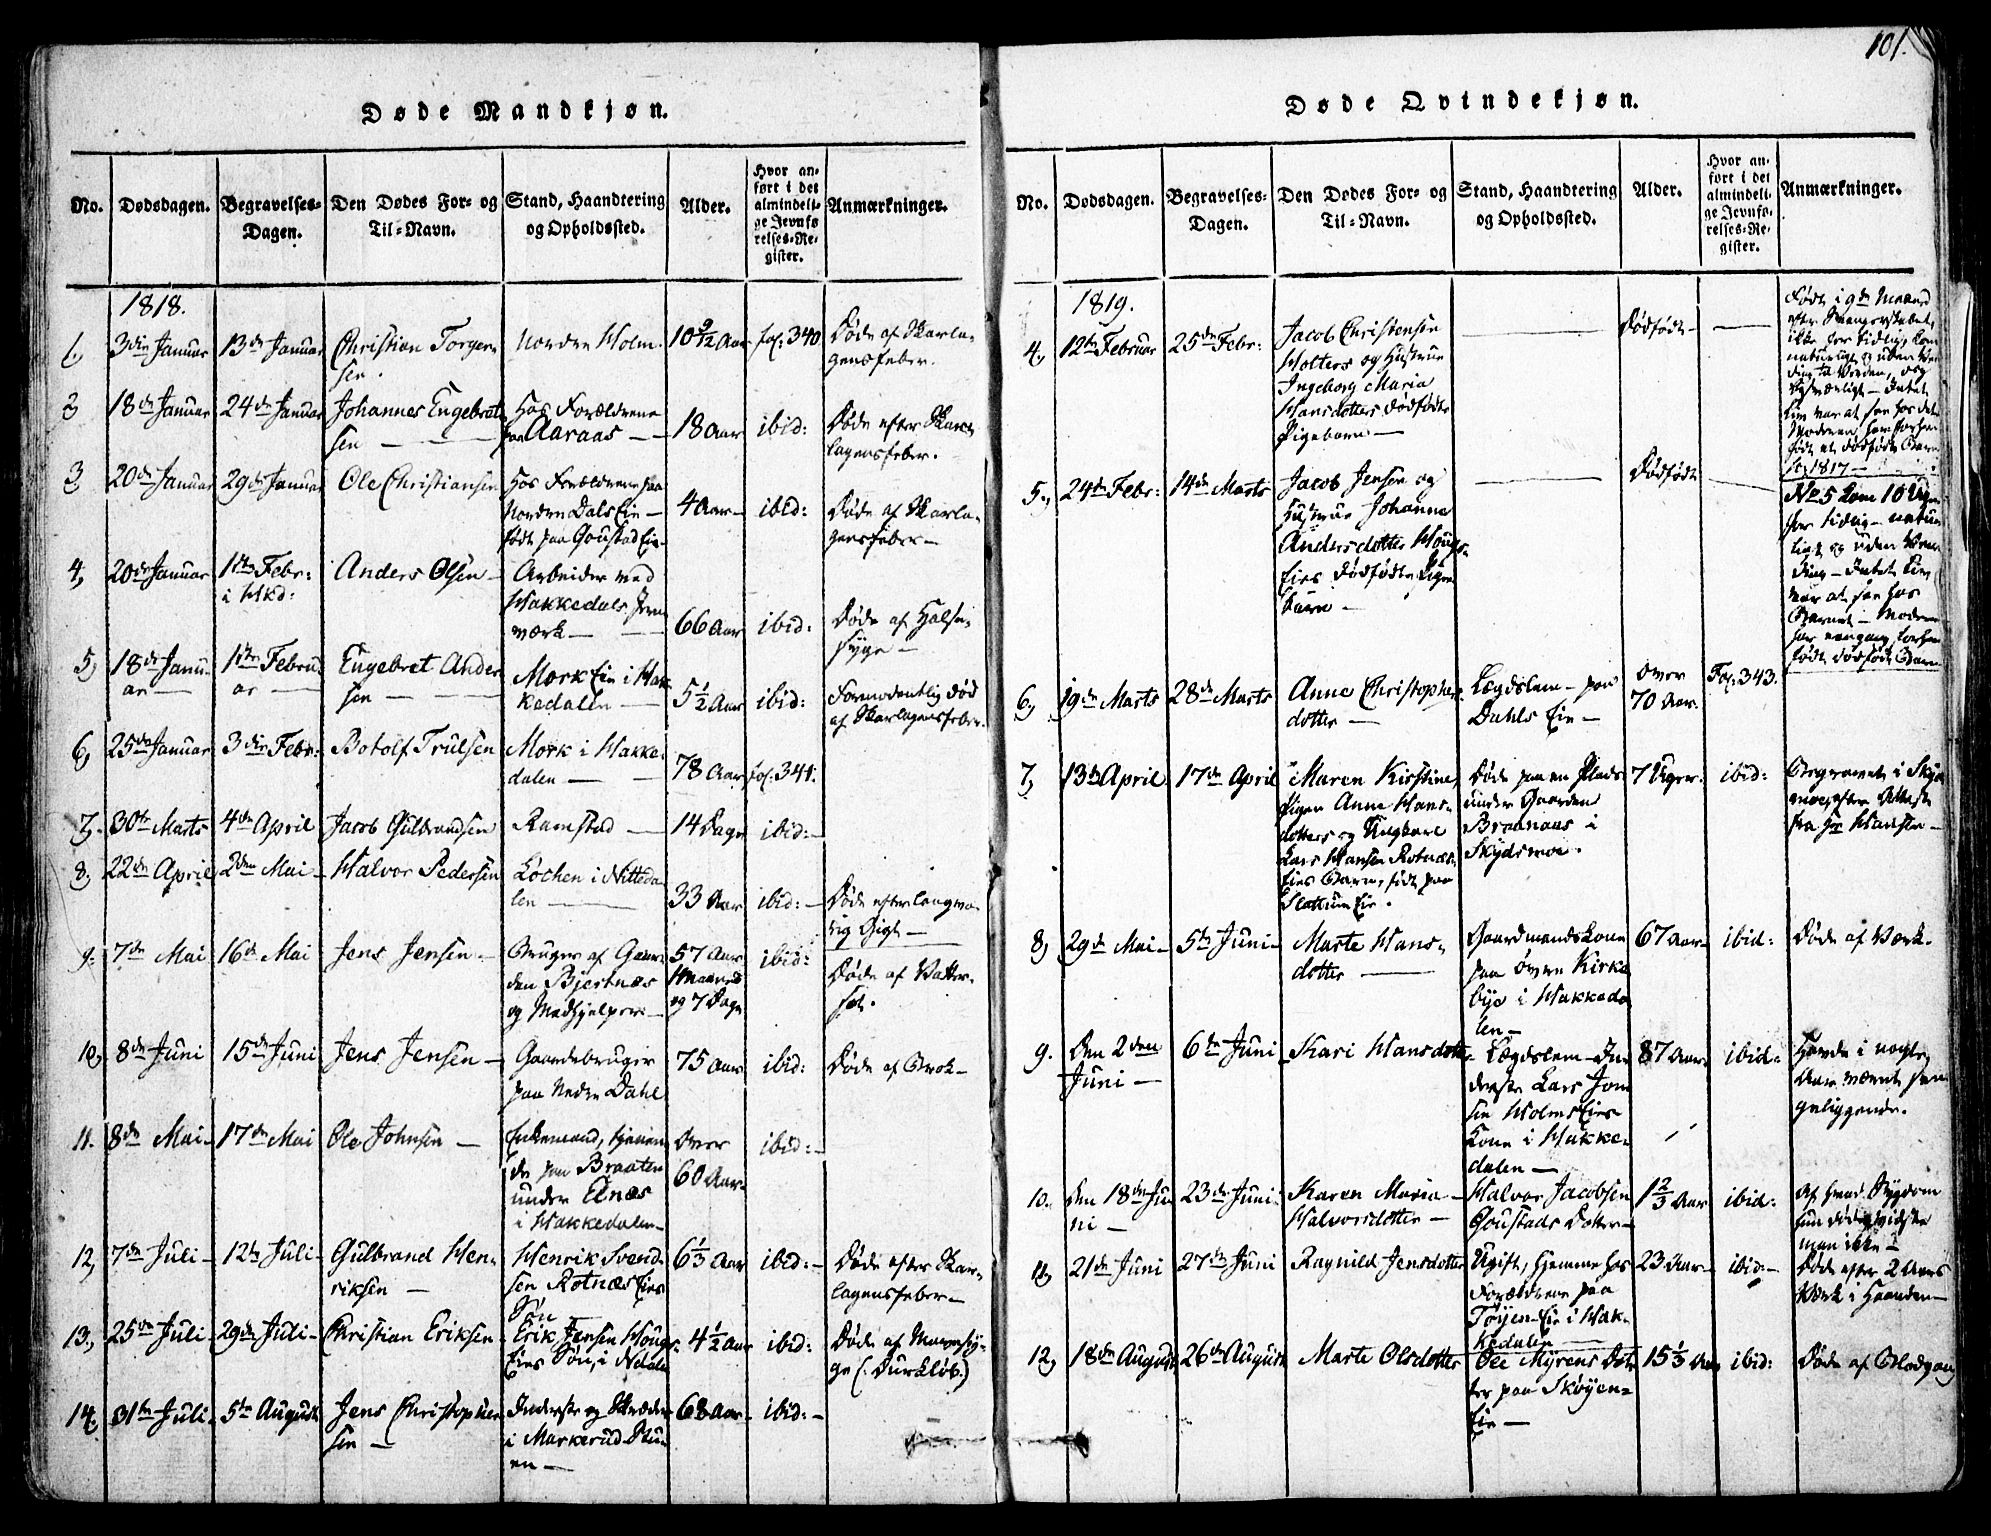 101.
Døde Mandkjøn.
No. Dødsdagen. Begravelses-Dagen. Den Dødes For- og Til-Navn. Stand, Haandtering og Opholdssted. Alder. Hvor anført i det almindelige Jevnførelses-Register. Anmærkninger.
1818.
1, 3die Januar 13de Januar Christian Torgersen. Nordre Holm. 10 9/12 Aar fol: 340 Døde af Skarlagensfeber.
2 18de Januar 24de Januar Johannes Engebretsen — Hos Forældrene paa Aaraas — 18 Aar ibid: Døde efter Skarlagensfeber.
3 20de Januar 29de Januar Ole Christiansen Hos Forældrene paa Nordre Dals Eie — født paa Goustad Eie 4 Aar — ibid: Døde af Skarlagensfeber —
4, 20de Januar 1ste Febr: i Hkd: Anders Olsen — Arbeider ved Hakkedals Jernværk — 66 Aar ibid: Døde af Halssyge —
5, 18de Januar — 1ste Februar — Engebret Andersen — Mork Eie i Hakkedalen — 5 1/2 Aar ibid: Formodentlig død af Skarlagensfeber.
6, 25de Januar 3die Febr: Botolf Trulsen Mork i Hakkedalen — 78 Aar fol: 341.
7. 30te Marts 4de April Jacob Gulbrandsen Ramstad — 14 Dage ibid: —
8. 22de April 2den Mai — Halvor Pedersen Løchen i Nittedalen — 33 Aar ibid: — Døde efter langvarig Gigt —
9. 7de Mai 16de Mai Jens Jensen — Bruger af Gaarden Bjertnæs og Medhjelper — 57 Aar Maaned og 7 Dage ibid: Døde af Vattersot.
10, 8de Juni 15de Juni Jens Jensen — Gaardebruger paa Nedre Dahl 75 Aar ibid: Døde af Brok —
11. 8de Mai — 17de Mai Ole Johnsen — Enkemand, tjenende paa Braaten under Elnæs i Hakkedalen — Over 60 Aar. ibid: —
12, 7de Juli — 12te Juli — Gulbrand Henriksen — Henrik Svendsen Rotnæs Eies Søn 6 1/3 Aar ibid: — Døde efter Skarlagensfeber —
13., 25de Juli — 29de Juli — Christian Eriksen Erik Jensen Hougs Eies Søn, i Ndalen 4 1/2 Aar ibid: Døde af Mavesyge (: Durkløb.)
14. 31te Juli. 5te August Jens Christophersen — Inderste og Skræder i Markerud Stuen — 68 Aar — ibid: —
Døde Qvindekjøn.
No. Dødsdagen. Begravelses-Dagen. Den Dødes For- og Til-Navn. Stand, Haandtering og Opholdssted. Alder. Hvor anført i det almindelige Jevnførelses-Register. Anmærkninger.
1819.
4., 12te Februar 25de Febr: Jacob Christensen Holters og Hustrue Ingeborg Maria Hansdotters dødfødte Pigebarn — — Dødfødt — — Født i 9de Maaned efter Svangerskabet, ikke for tidlig, kom naturligt og uden Vending til Verden, — Intet Liv var at see hos det. Moderen har forhen født et dødfødt Barn 1817 —
5., 24de Febr: 14de Marts Jacob Jensen og Hustrue Johanne Andersdotter Hougs Eies dødfødte Pigebarn — — Dødfødt No 5 kom 10 Uger for tidlig — naturligt og uden Vending — Intet Liv var at see hos Barnet — Moderen har eengang forhen født dødfødt Barn
6, 19de Marts 28de Marts Anne Christophersdotter — Lægdslem — paa Dahls Eie — over 70 Aar. Fol: 343.
7, 13de April. 17de April Maren Kirstine, Pigen Anne Hansdotters og Ungkarl Lars Hansen Rotnæs Eies Barn, født paa Slattum Eie. Døde paa en Plads under Gaarden Braanaas i Skydsmoe. 7 Uger. ibid: Begravet i Skydsmoe efter Attest fra Hr Hansen —
8, 29de Mai — 5te Juni — Marte Hansdotter — Gaardmandskone paa øvre Kirkebye i Hakkedalen — 67 Aar — ibid: Døde af Værk.
9. Den 2den Juni — 6te Juni Kari Hansdotter Lægdslem — Inderste Lars Jonsen Holms Eies Kone i Hakkedalen — 87 Aar. ibid: Havde i nogle Aar været sengeliggende.
10. Den 18de Juni — 23de Juni — Karen Maria Halvorsdotter — Halvor Jacobsen Goustads Dotter — 1 2/3 Aar ibid: Af hvad Sygdom hun døde vidste man ikke —
11, 21de Juni 27de Juni Ragnild Jensdotter Ugift, hjemme hos Forældrene paa Tøyen-Eie i Hakkedalen 23 Aar — ibid: — Døde efter 2 Aars Værk i Haanden —
12, 18de August 26de August Marte Olsdotter Ole Myrens Dotter paa Skøyen-Eie — 15 1/3 Aar ibid: Døde af Blodgang